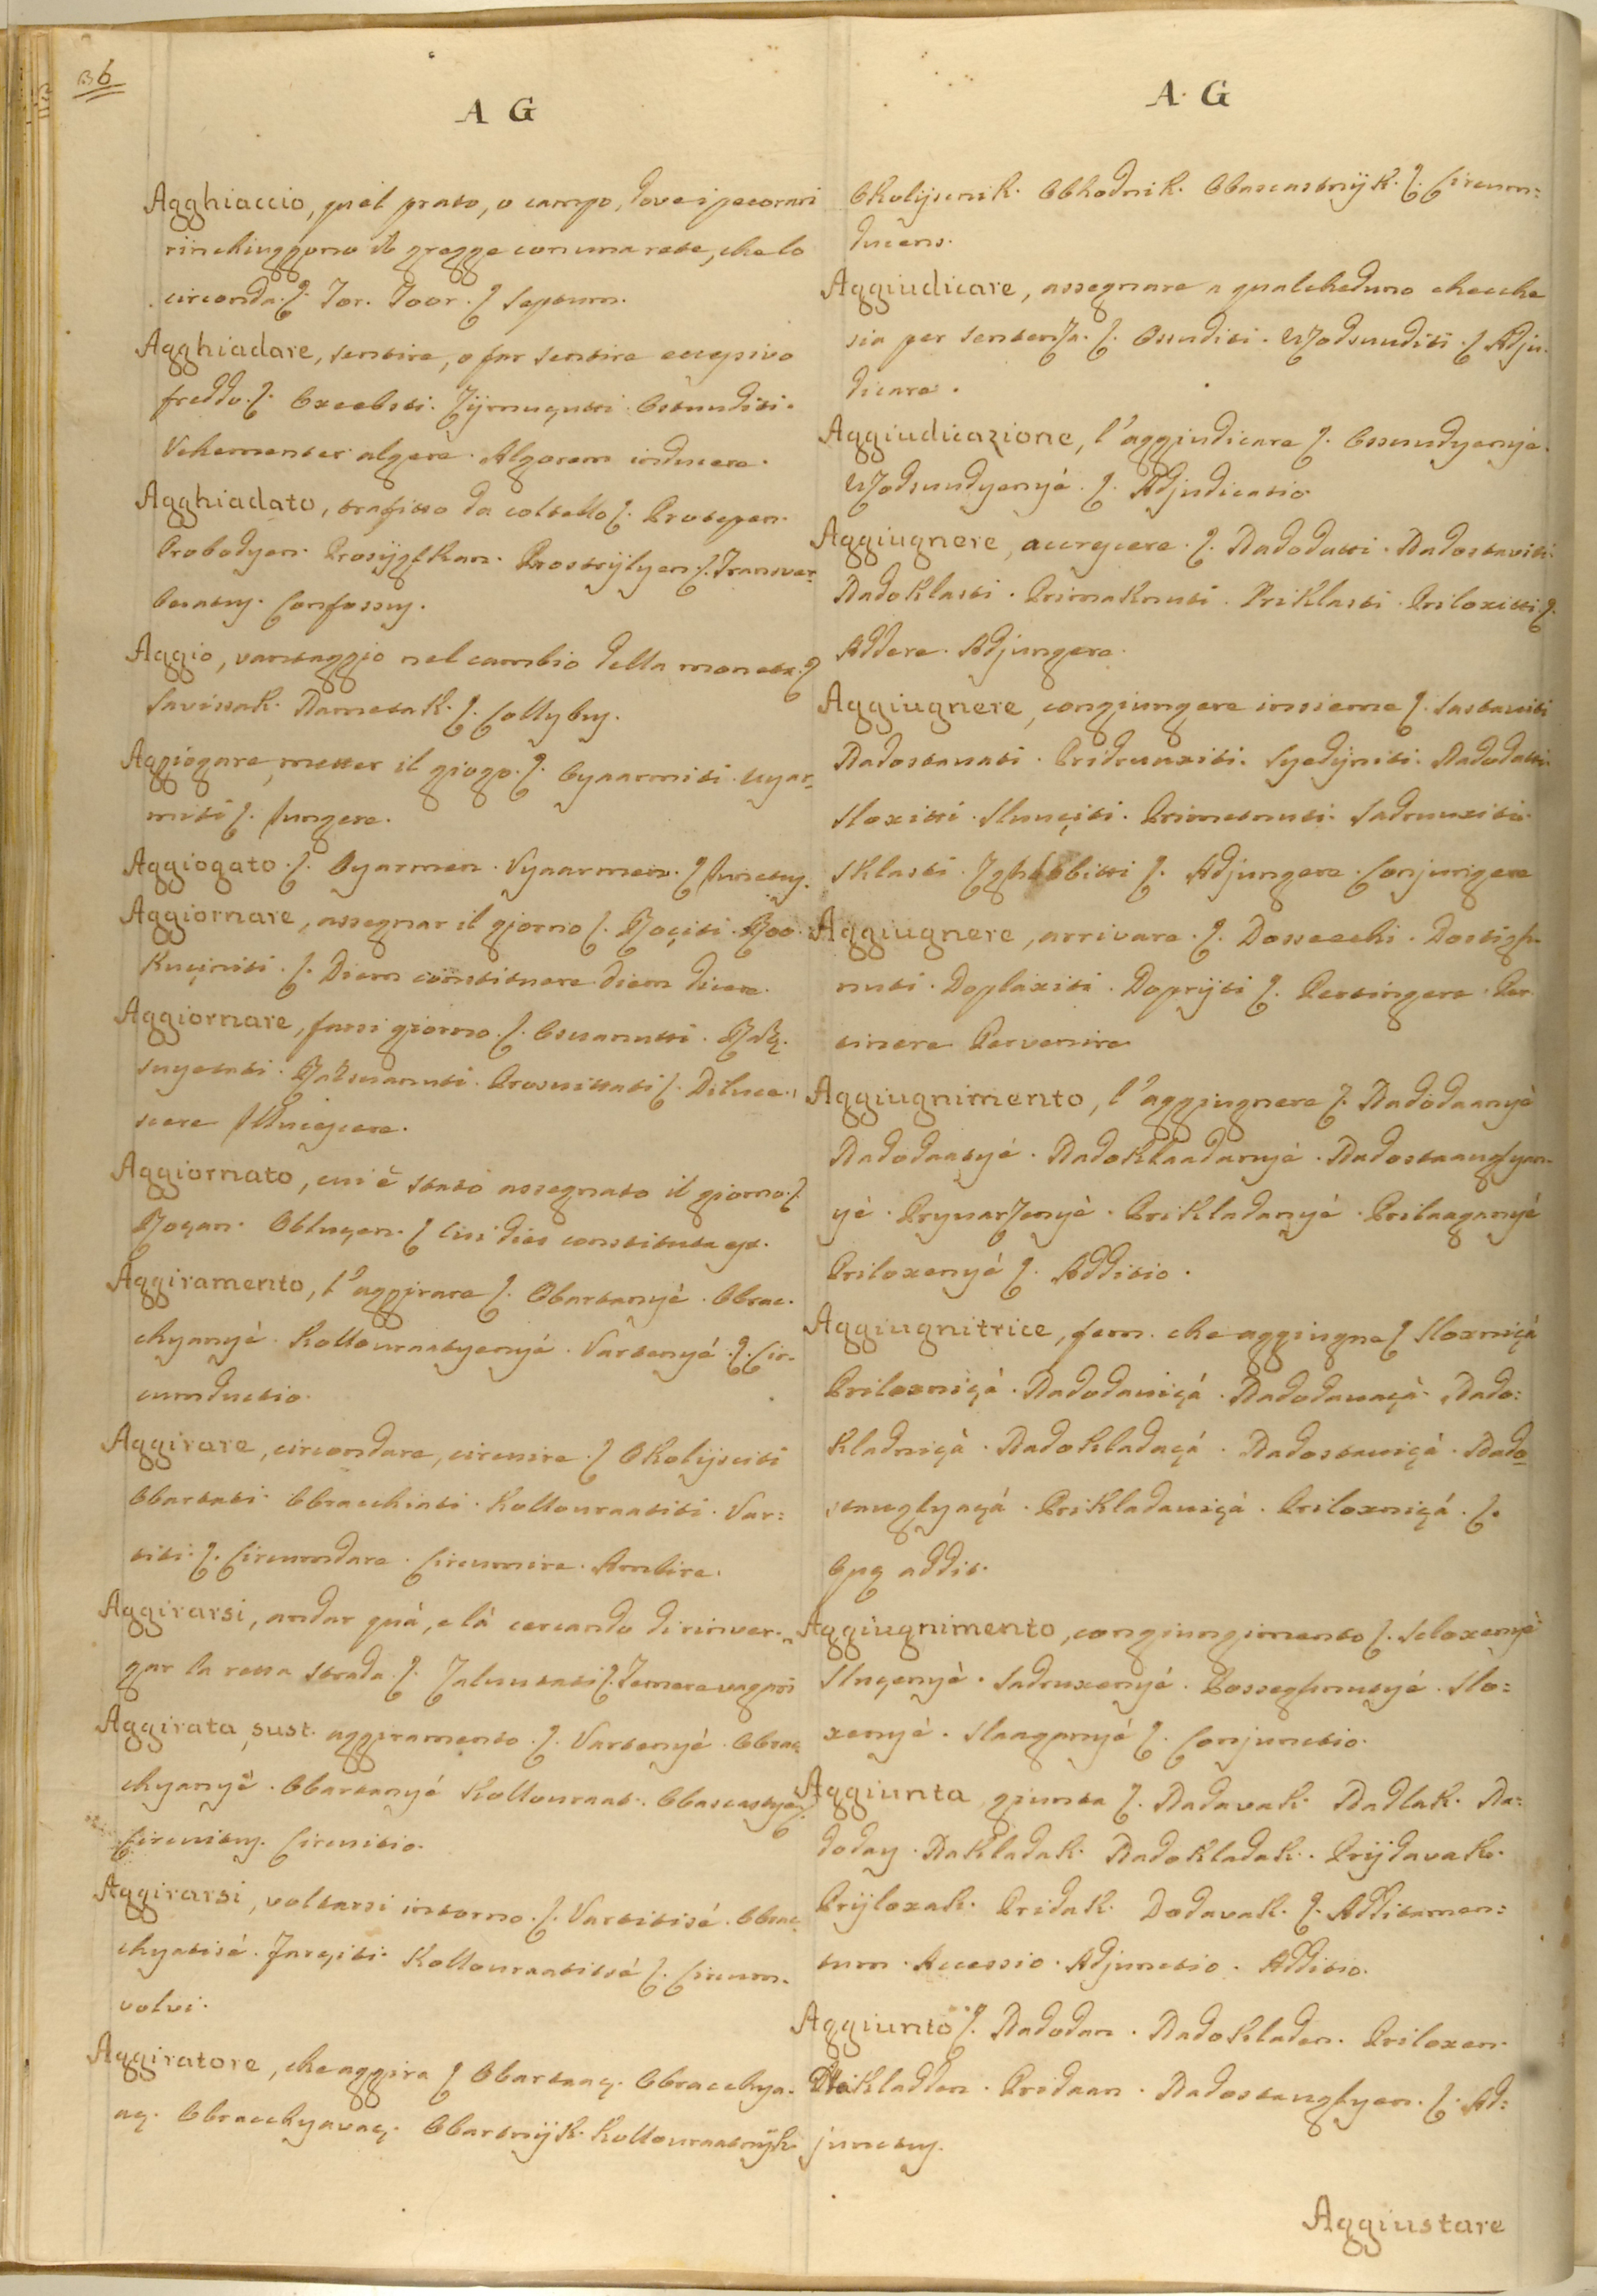 36
A G
Agghiaccio, quel prato, o campo, dove i pecorari
rinchiuggono il gregge con una rete, che lo
circonda. ſ. Tor. Toor. ſ Septum.
Agghiadare, sentire, o far sentire eccessivo
freddo. ſ. Ozeebsti. Ostuuditi.
Vehementer algere. Algorem inducere.
Agghiadato, trafitto da coltello ſ. Protepen.
Probodyen. Prostrijlyen ſ. Transver-
beratus. Confossus.
Aggio, vantaggio nel cambio della moneta. ſ
Savissak. Nametak. ſ. Collybus.
Aggiogare, metter il giogo. ſ. Oyaarmiti. uyar-
miti ſ. Jungere.
Aggiogato. ſ. Oyarmen. Vyaarmen. ſ Junctus.
Aggiornare, assegnar il giorno ſ. Roçiti. Roo-
kuçiniti. ſ. Diem constituere diem dicere.
Aggiornare, farsi giorno. ſ. Osvanutti.
Prosvittati ſ. Diluce-
scere Illucescere.
Aggiornato, cui è stato assegnato il giorno. ſ.
Roçan. Obluçen. ſ Cui dies constituta est.
Aggiramento, l'aggirare ſ. Obartanyè. Obrac-
chyanyè. Kollouraatyenyé. Vartenyé. ſ. Cir-
cumductio.
Aggirare, circondare, circuire. ſ Okolijsciti
Obartati. Obracchiati. Kollouraatiti. Var:
titi. ſ. Circumdare. Circumire. Ambire.
Aggirarsi, andar quà, e là cercando di rinver-
gar la retta strada. ſ. Zaluutati ſ. Temere vagari
Aggirata, sust. aggiramento. ſ. Vartenyé. Obrac-
chyanyè. Obartanyé Kollouraat. Obascastye ſ.
Circuitus. Circuitio.
Aggirarsi, voltarsi intorno. ſ. Vartitisé. Obrac-
chyatisé. Zarçiti. Kollouraatitsé ſ. Circum-
volvi.
Aggiratore, che aggira ſ Obartaaç. Obracchya-
aç. Obracchyavaç. Obartnijk. Kollouraatnijk.
A. G
Okolijscnik. Obhodnik. Obascastnijk. ſ. Circum:
ducens.
Aggiudicare, assegnare a qualcheduno checche
sia per sentenza. ſ. Ossuditi. Uzodsuuditi. ſ Adju-
dicare.
Aggiudicazione, l'aggiudicare ſ. Ossuudyenye.
Uzodsuudyenyé. ſ. Adjudicatio
Aggiugnere, accrescere. ſ. Nadodatti. Nadostaviti.
Nadoklasti. Primaknuti. Priklasti. Priloxitti. ſ.
Addere. Adjungere.
Aggiugnere, congiungere insieme ſ. Sastaviti
Nadostavati. Pridruuxiti. Syedijniti. Nadodatti.
Sloxitti. Sluuçiti. Primetnuti. Sadruuxiti.
Sklasti. ſ. Adjungere. Conjungere
Aggiugnere, arrivare. ſ. Dosseechi. Dostigh-
nuti. Doplaxiti. Doprijti ſ. Pertingere. Per-
tinere Pervenire.
Aggiugnimento, l'aggiugnere ſ. Nadodaanyè
Nadodaatyé. Nadoklaadanyé. Nadostaauglyen-
yè. Pryvarzenyè. Prikladanyé. Prilaaganyé
Priloxenyé ſ. Additio.
Aggiugnitrice, fem. che aggiugne ſ Sloxniçà
Priloxniçá. Nadodaviçá. Nadodavaçà. Nado:
kladniçà. Nadokladaçá. Nadostaviçà. Nado
stauglyaçá. Prikladaviçá. Priloxniçá. ſ.
Quæ addit.
Aggiugnimento, congiungimento ſ. Scloxenyè
Sluçenyè. Sadruxenyé. Posseghnutyé. Slo:
xenyé. Slaaganyé ſ. Conjunctio.
Aggiunta, giunta ſ. Nadavak. Nadlak. Na:
doday. Nakladak. Nadokladak. Prijdavak.
Prijloxak. Pridak. Dodavak. ſ. Additamen:
tum. Accessio. Adjunctio. Additio.
Aggiunto ſ. Nadodan. Nadokladen. Priloxen.
Prikladden. Pridaan. Nadostauglyen. ſ. Ad:
junctus.
Aggiustare